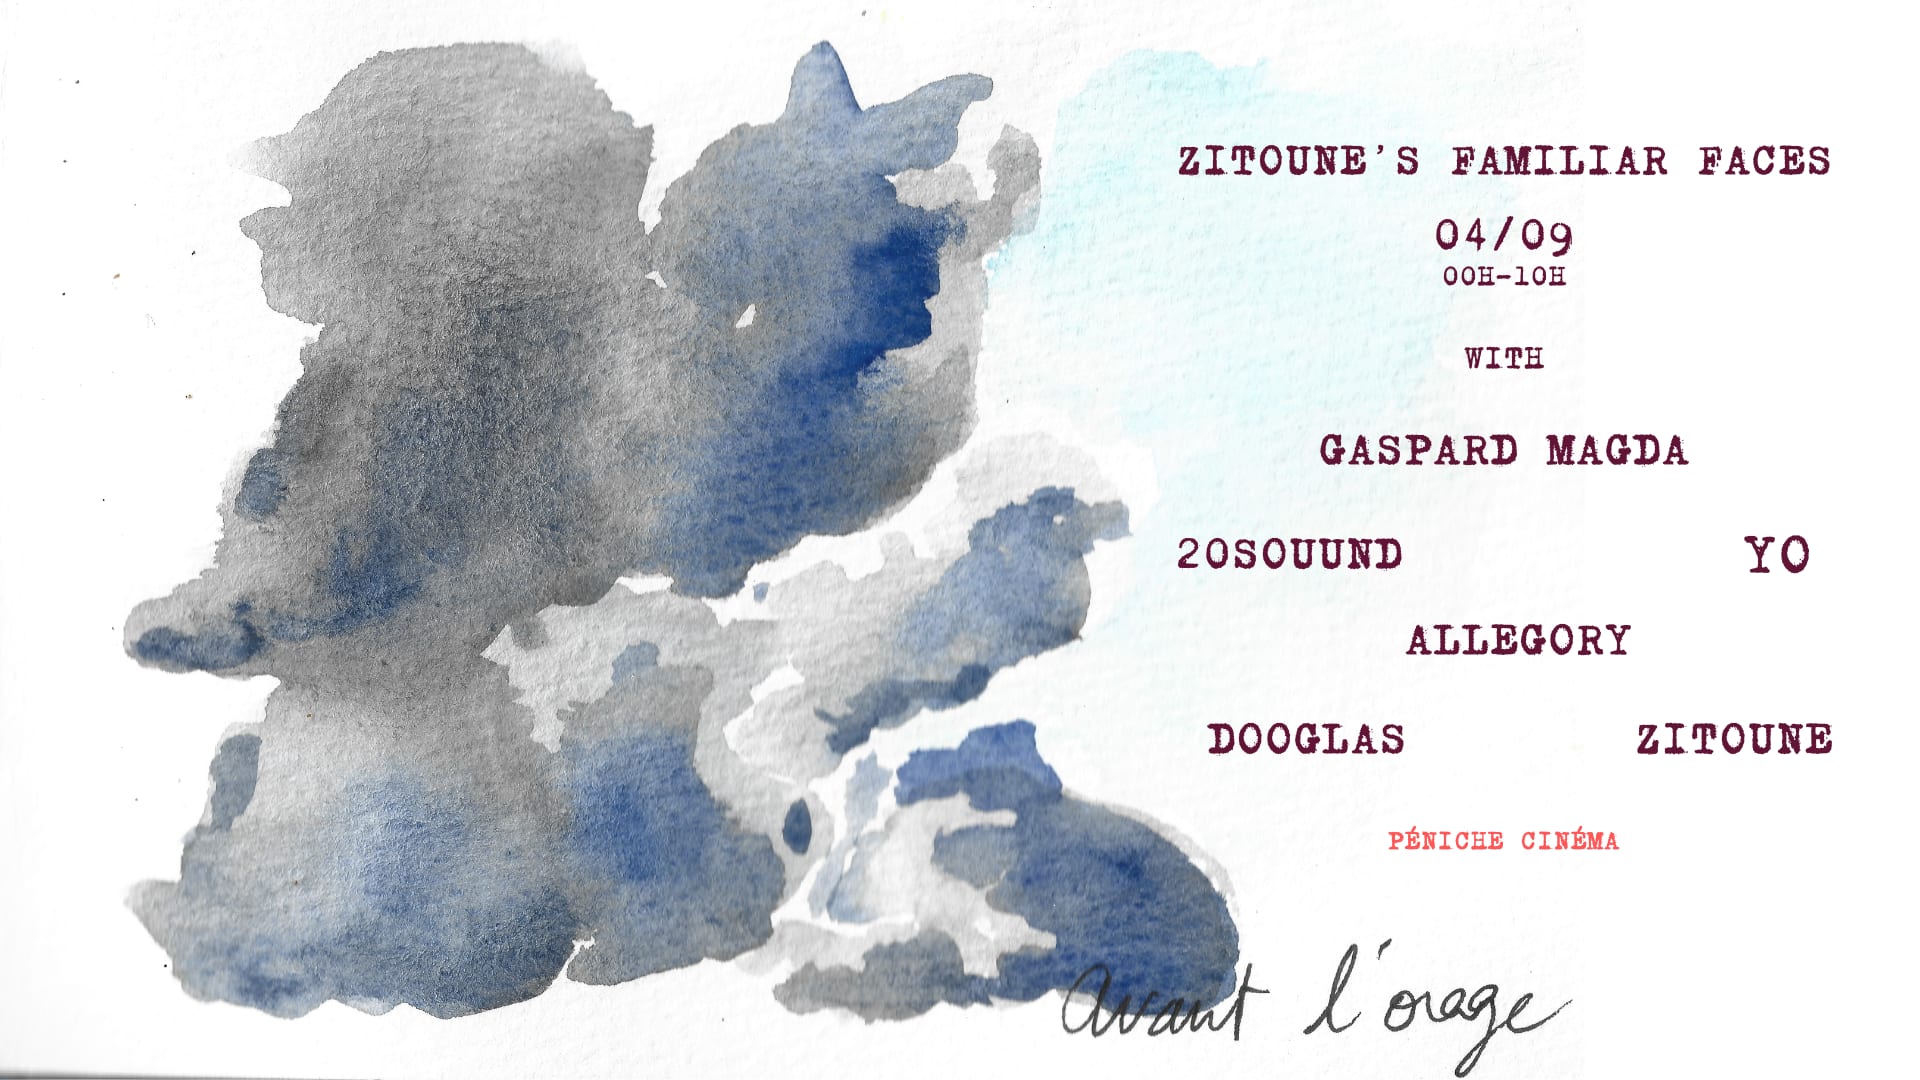 ZITOUNE'S FAMILIAR FACES
04/09
00H-10H
WITH
GASPARD MAGDA
20SOUUND YO
ALLEGORY
DOOGLAS ZITOUNE
PÉNICHE CINÉMA
avant l'orage